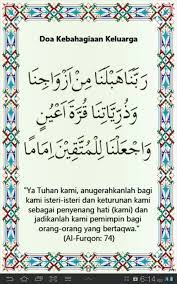 Doa Kebahagiaan Keluarga
رَبَّنَا هَبْلَنَا مِنْ أَزْوَاجِنَا
وَذُرِّيَّاتِنَا قُرَّةَ أَعْيُنٍ
وَاجْعَلْنَا لِلْمُتَّقِيْنَ إِمَامًا
"Ya Tuhan kami, anugerahkanlah bagi
kami isteri-isteri dan keturunan kami
sebagai penyenang hati (kami) dan
jadikanlah kami pemimpin bagi
orang-orang yang bertaqwa."
(Al-Furqon: 74)
6:14